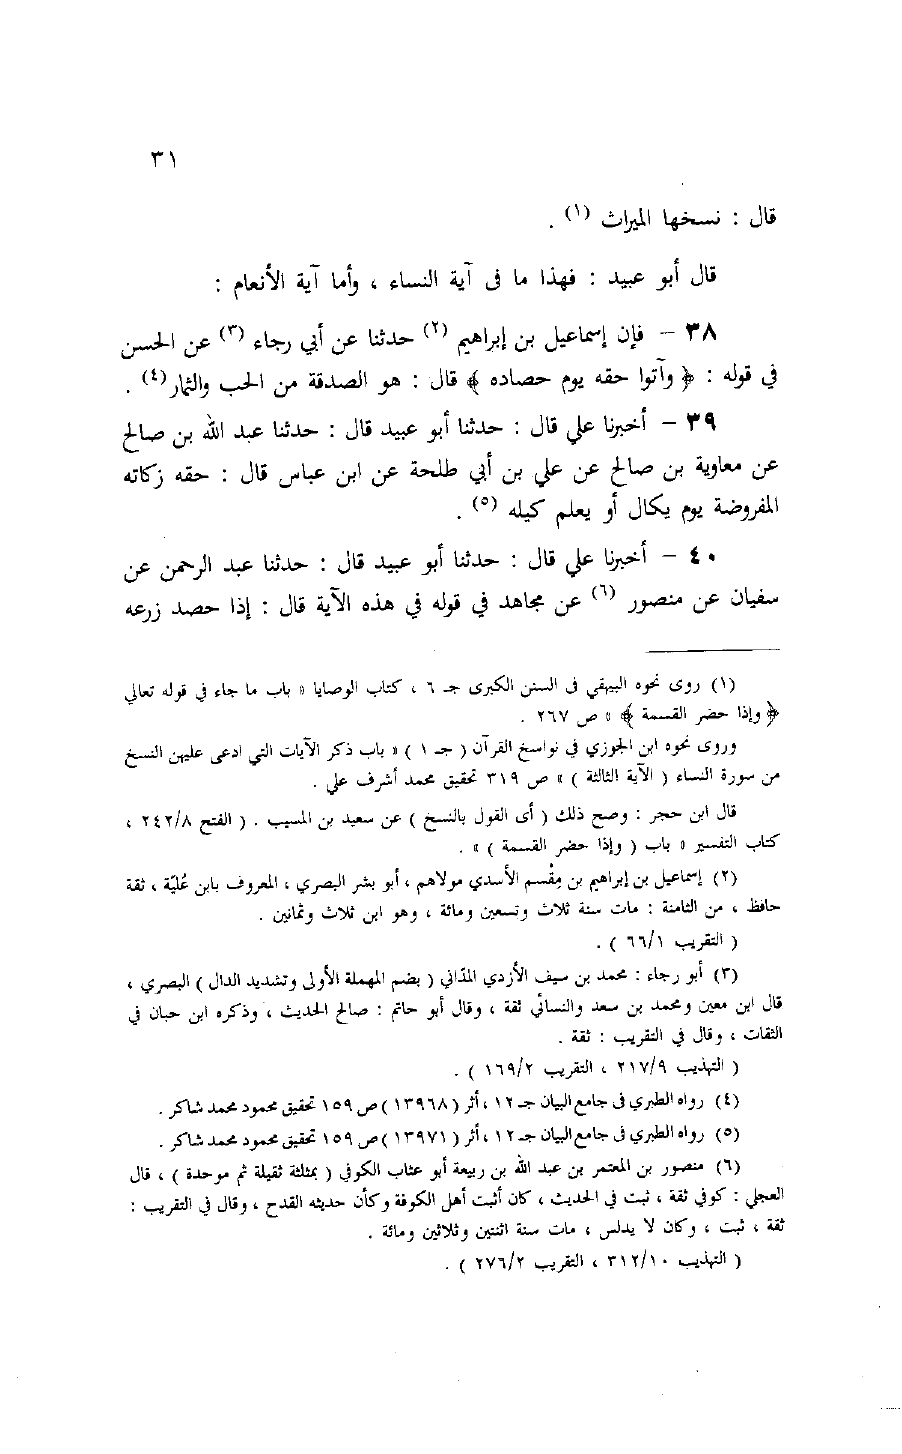 ٣١
قال : نسخها الميراث (١) .
قال أبو عبيد : فهذا ما فى آية النساء ، وأما آية الأنعام :
٣٨ – فإن إسماعيل بن إبراهيم (٢) حدثنا عن أبي رجاء (٣) عن الحسن
في قوله : ﴿ وآتوا حقه يوم حصاده ﴾ قال : هو الصدقة من الحب والثمار (٤) .
٣٩ – أخبرنا علي قال : حدثنا أبو عبيد قال : حدثنا عبد الله بن صالح
عن معاوية بن صالح عن علي بن أبي طلحة عن ابن عباس قال : حقه زكاته
المفروضة يوم يكال أو يعلم كيله (٥) .
٤٠ – أخبرنا علي قال : حدثنا أبو عبيد قال : حدثنا عبد الرحمن عن
سفيان عن منصور (٦) عن مجاهد في قوله في هذه الآية قال : إذا حصد زرعه
(١) روى نحوه البيهقي فى السنن الكبرى جـ ٦ ، كتاب الوصايا « باب ما جاء في قوله تعالي
﴿ وإذا حضر القسمة ﴾ » ص ٢٦٧ .
وروى نحوه ابن الجوزي في نواسخ القرآن ( جـ ١ ) « باب ذكر الآيات التي ادعى عليهن النسخ
من سورة النساء ( الآية الثالثة ) » ص ٣١٩ تحقيق محمد أشرف علي .
قال ابن حجر : وصح ذلك ( أى القول بالنسخ ) عن سعيد بن المسيب . ( الفتح ٢٤٢/٨ ،
كتاب التفسير « باب ( وإذا حضر القسمة ) » .
(٢) إسماعيل بن إبراهيم بن مِقْسم الأسدي مولاهم ، أبو بشر البصري ، المعروف بابن عُليّة ، ثقة
حافظ ، من الثامنة : مات سنة ثلاث وتسعين ومائة ، وهو ابن ثلاث وثمانين .
( التقريب ٦٦/١ ) .
(٣) أبو رجاء : محمد بن سيف الأزدي الحُدّاني ( بضم المهملة الأولى وتشديد الدال ) البصري ،
قال ابن معين ومحمد بن سعد والنسائي ثقة ، وقال أبو حاتم : صالح الحديث ، وذكره ابن حبان في
الثقات ، وقال في التقريب : ثقة .
( التهذيب ٢١٧/٩ ، التقريب ١٦٩/٢ ) .
(٤) رواه الطبري فى جامع البيان جـ ١٢ ، أثر ( ١٣٩٦٨ ) ص ١٥٩ تحقيق محمود محمد شاكر .
(٥) رواه الطبري فى جامع البيان جـ ١٢ ، أثر ( ١٣٩٧١ ) ص ١٥٩ تحقيق محمود محمد شاكر .
(٦) منصور بن المعتمر بن عبد الله بن ربيعة أبو عتاب الكوفي ( بمثلثة ثقيلة ثم موحدة ) ، قال
العجلي : كوفي ثقة ، ثبت في الحديث ، كان أثبت أهل الكوفة وكأن حديثه القدح ، وقال في التقريب :
ثقة ، ثبت ، وكان لا يدلس ، مات سنة اثنتين وثلاثين ومائة .
( التهذيب ٣١٢/١٠ ، التقريب ٢٧٦/٢ ) .